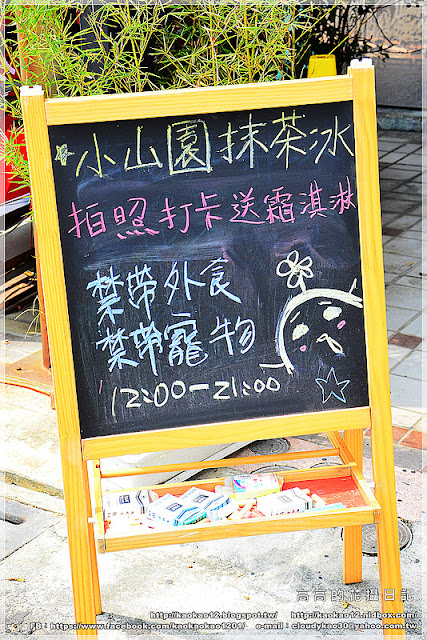 小山園抹茶冰
拍照打卡送霜淇淋
禁帶外食
禁帶寵物
12:00-21:00
高高的旅遊日記
http://kaokao12.blogspot.tw/ http://kaokao12.nidbox.com/
FB:https://www.facebook.com/kaokaokao1201/ e-mail:cloudykao30@yahoo.com.tw